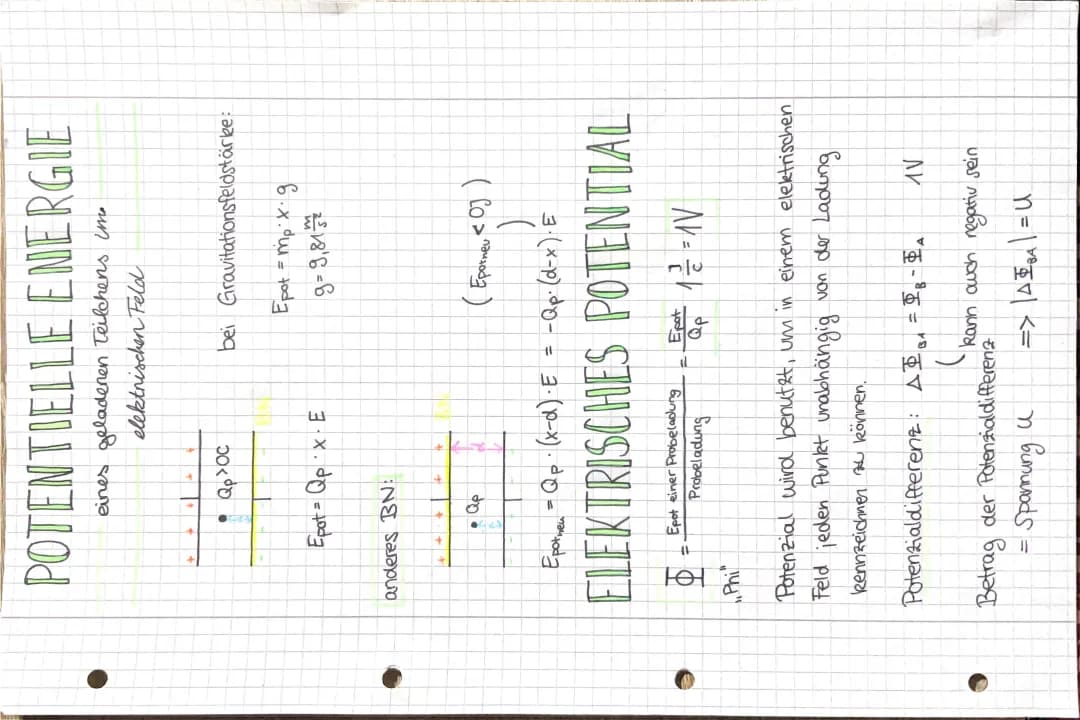 POTENTIELLE ENERGIE
eines geladenen Teilchens im
elektrischen Feld
+ + + + + +
• Qp>0C
BN
- - - - -
bei Gravitationsfeldstärke:
Epot = mp · x · g
g = 9,81 m/s²
Epot = Qp · x · E
anderes BN:
+ + + + + + BN
• Qp
d
- - - -
(Epotneu < 0J)
Epotneu = Qp · (x-d) · E = -Qp · (d-x) · E
ELEKTRISCHES POTENTIAL
Φ = Epot einer Probeladung / Probeladung = Epot / Qp 1 J/C = 1V
"Phi"
Potenzial wird benutzt, um in einem elektrischen
Feld jeden Punkt unabhängig von der Ladung
kennzeichnen zu können.
Potenzialdifferenz: ΔΦBA = ΦB - ΦA 1V
( kann auch negativ sein
Betrag der Potenzialdifferenz
= Spannung U => |ΔΦBA| = U